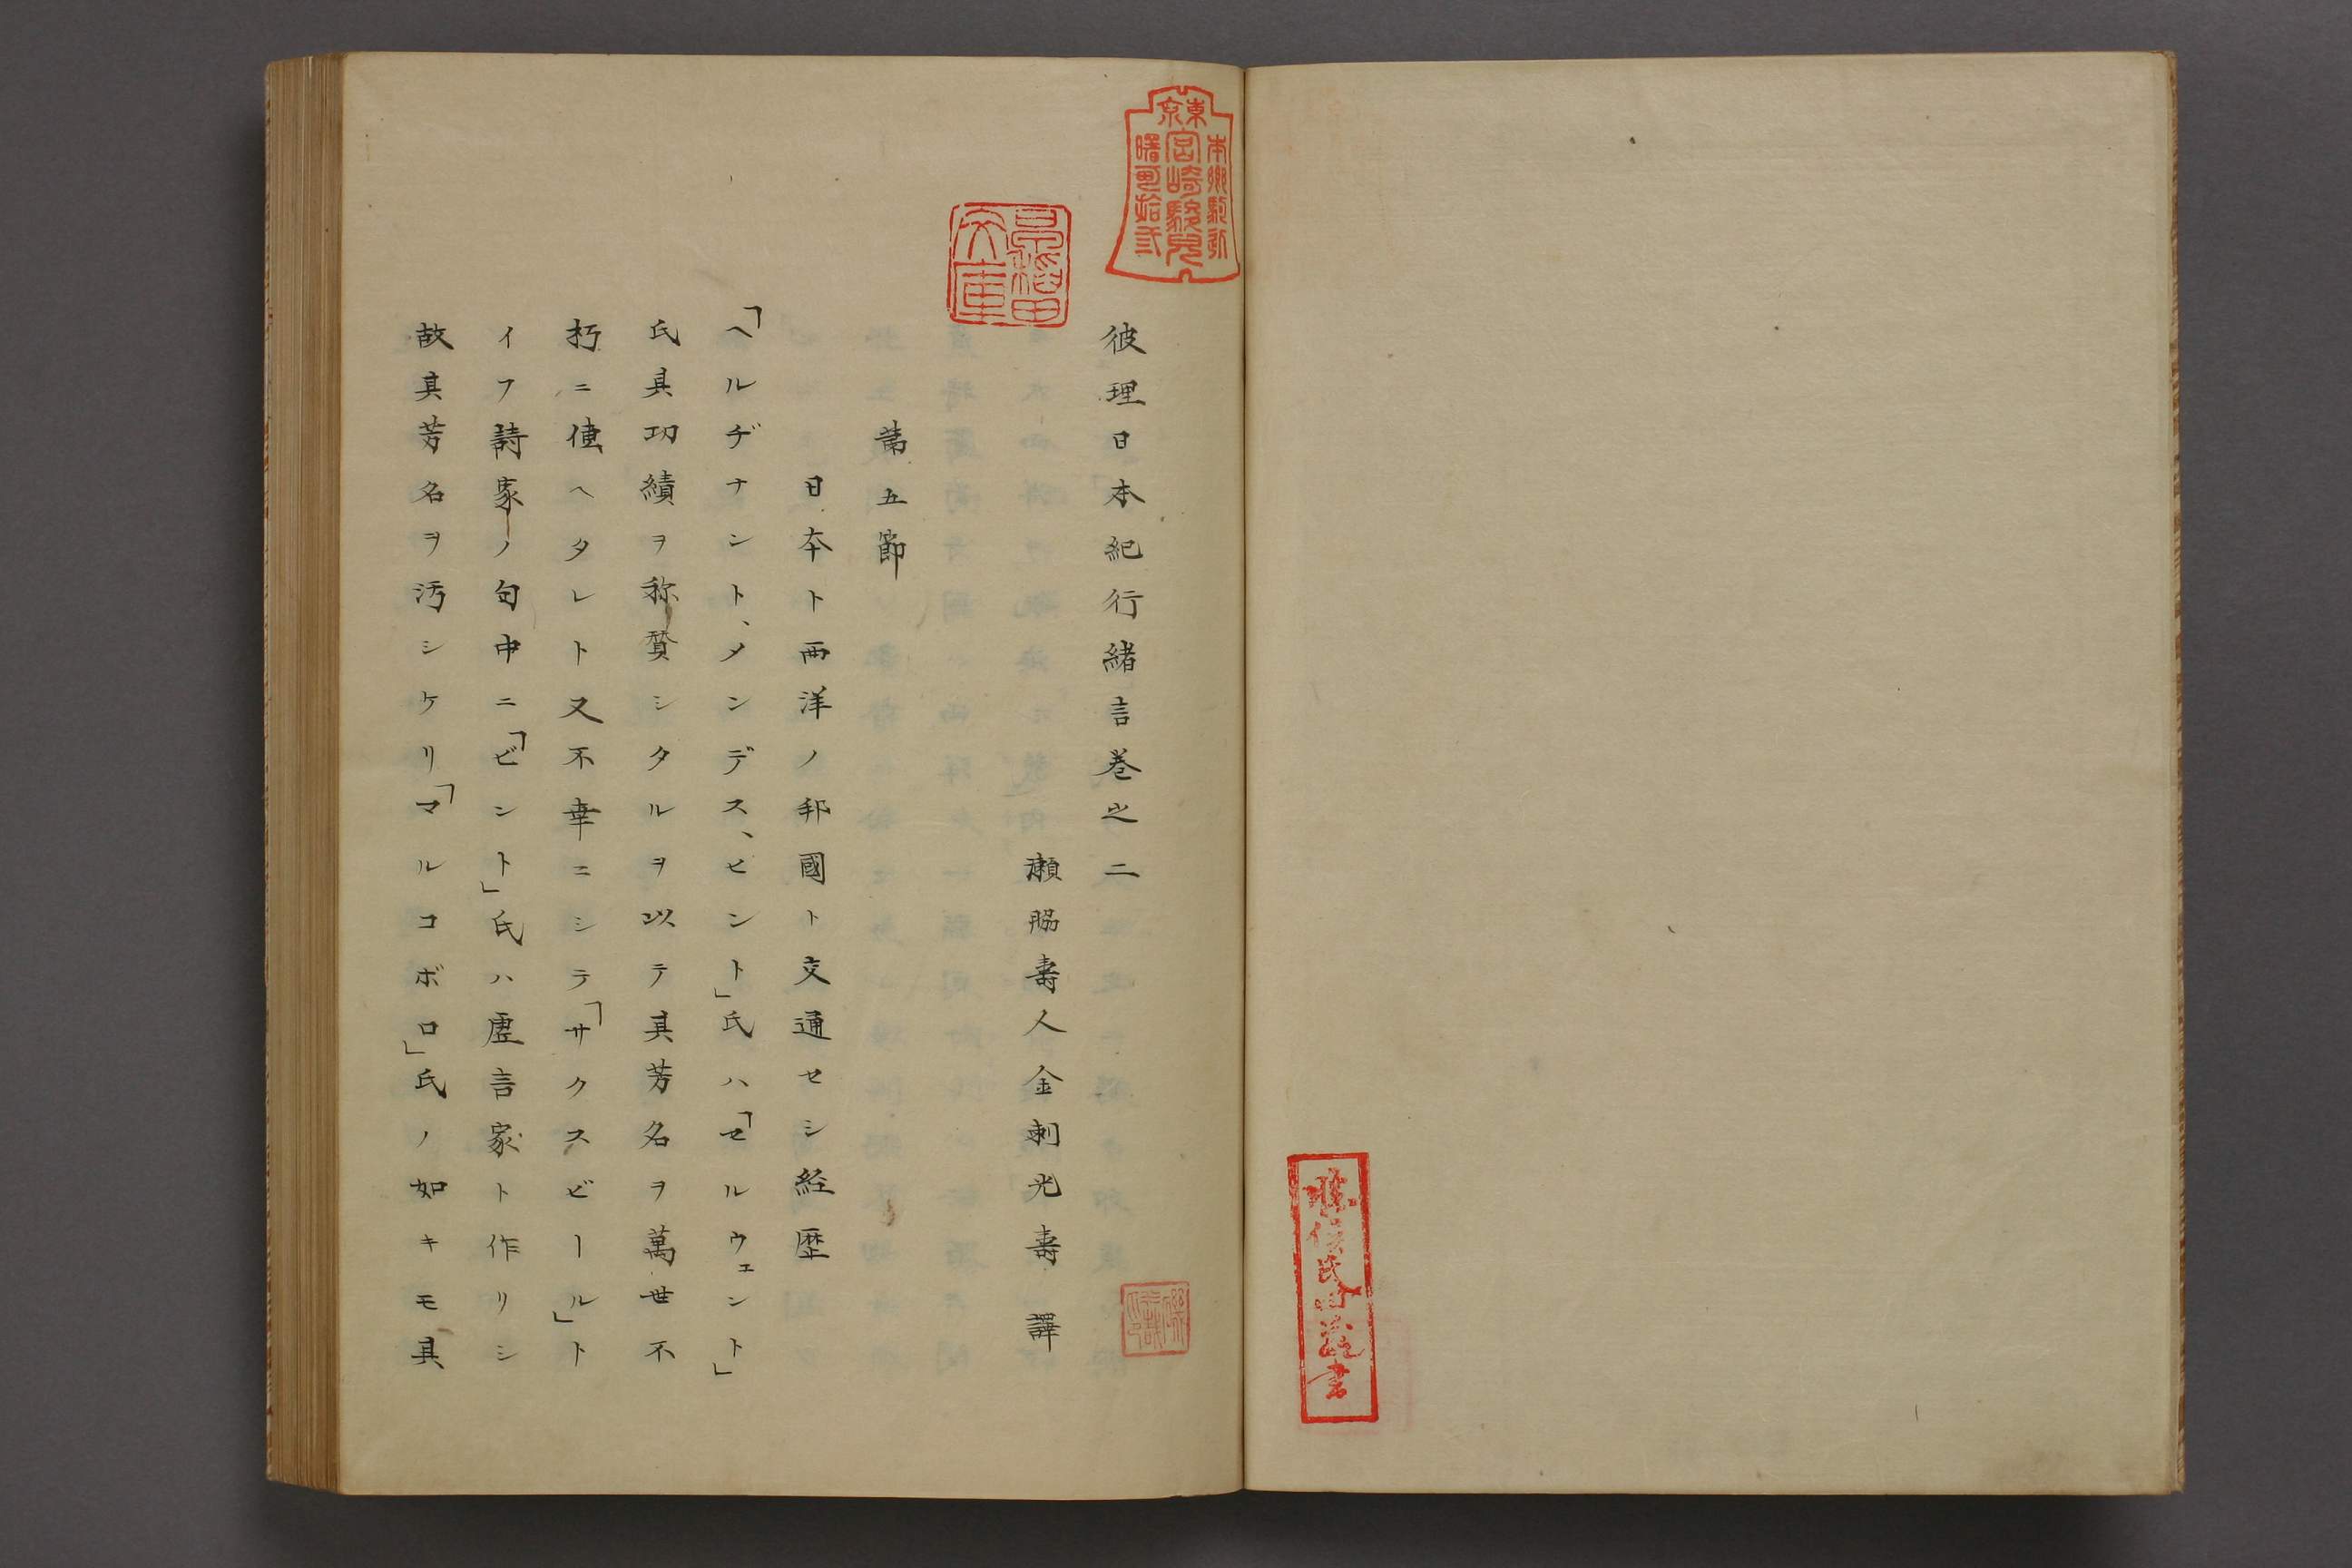 彼理日本紀行緒言巻之二
瀬脇壽人金刺光壽 譯
第五節
日本ト西洋ノ邦國ト交通セシ経歴
「ヘルヂナント、メンデス、ピント」氏ハ「セルウェント」
氏其功績ヲ称賛シタルヲ以テ其芳名ヲ萬世不
朽ニ傳ヘタレト又不幸ニシテ「サクスビール」ト
イフ詩家ノ句中ニ「ピント」氏ハ虚言家ト作リシ
故其芳名ヲ汚シケリ「マルコボロ」氏ノ如キモ其
東京
本郷駒込
宮崎駿児
曙町拾弐
早稲田
文庫